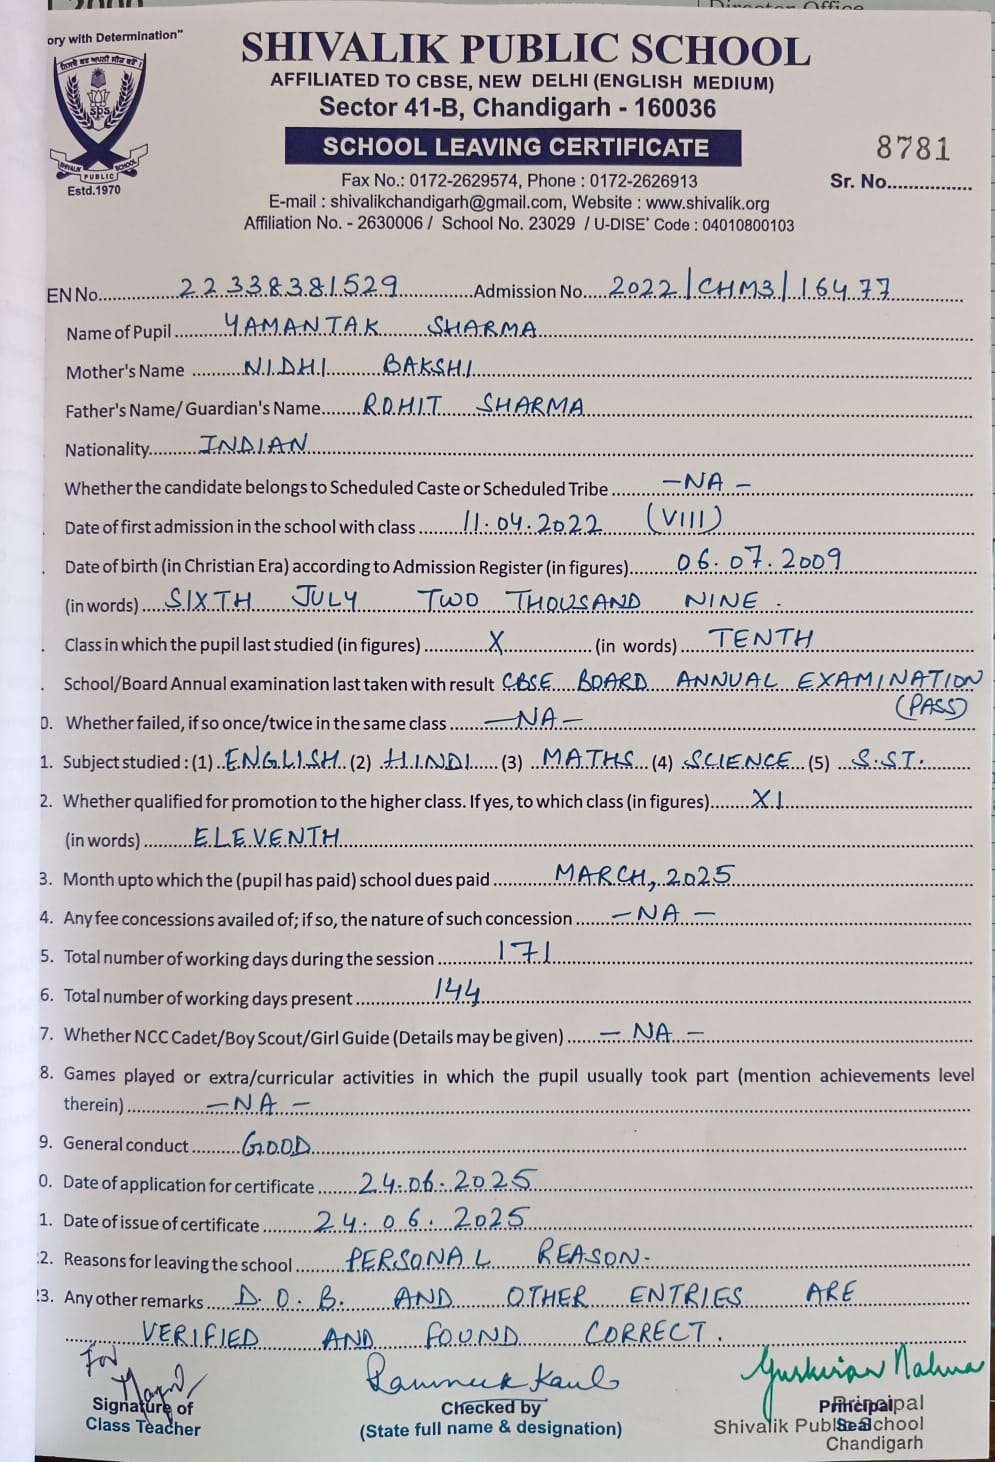 2000
Director Office
ory with Determination"
SHIVALIK PUBLIC SCHOOL
AFFILIATED TO CBSE, NEW DELHI (ENGLISH MEDIUM)
Sector 41-B, Chandigarh - 160036
SCHOOL LEAVING CERTIFICATE
8781
SPS
SHIVALIK PUBLIC SCHOOL
Estd.1970
Fax No.: 0172-2629574, Phone : 0172-2626913
Sr. No...............
E-mail : shivalikchandigarh@gmail.com, Website : www.shivalik.org
Affiliation No. - 2630006 / School No. 23029 / U-DISE+ Code : 04010800103
EN No. 22338381529 Admission No. 2022/CHM3/16477
Name of Pupil YAMANTAK SHARMA
Mother's Name NIDHI BAKSHI
Father's Name/ Guardian's Name ROHIT SHARMA
Nationality INDIAN
Whether the candidate belongs to Scheduled Caste or Scheduled Tribe -NA-
Date of first admission in the school with class 11.04.2022 (VIII)
Date of birth (in Christian Era) according to Admission Register (in figures) 06.07.2009
(in words) SIXTH JULY TWO THOUSAND NINE.
Class in which the pupil last studied (in figures) X (in words) TENTH
School/Board Annual examination last taken with result CBSE BOARD ANNUAL EXAMINATION
(PASS)
0. Whether failed, if so once/twice in the same class -NA-
1. Subject studied : (1) ENGLISH (2) HINDI (3) MATHS (4) SCIENCE (5) S.ST.
2. Whether qualified for promotion to the higher class. If yes, to which class (in figures) XI
(in words) ELEVENTH
3. Month upto which the (pupil has paid) school dues paid MARCH, 2025
4. Any fee concessions availed of; if so, the nature of such concession -NA-
5. Total number of working days during the session 171
6. Total number of working days present 144
7. Whether NCC Cadet/Boy Scout/Girl Guide (Details may be given) -NA-
8. Games played or extra/curricular activities in which the pupil usually took part (mention achievements level
therein) -NA-
9. General conduct GOOD
0. Date of application for certificate 24.06.2025
1. Date of issue of certificate 24.06.2025
2. Reasons for leaving the school PERSONAL REASON.
3. Any other remarks D.O.B. AND OTHER ENTRIES ARE
VERIFIED AND FOUND CORRECT.
For
Signature of
Class Teacher
Checked by
(State full name & designation)
Principal
Seal
Principal
Shivalik Public School
Chandigarh